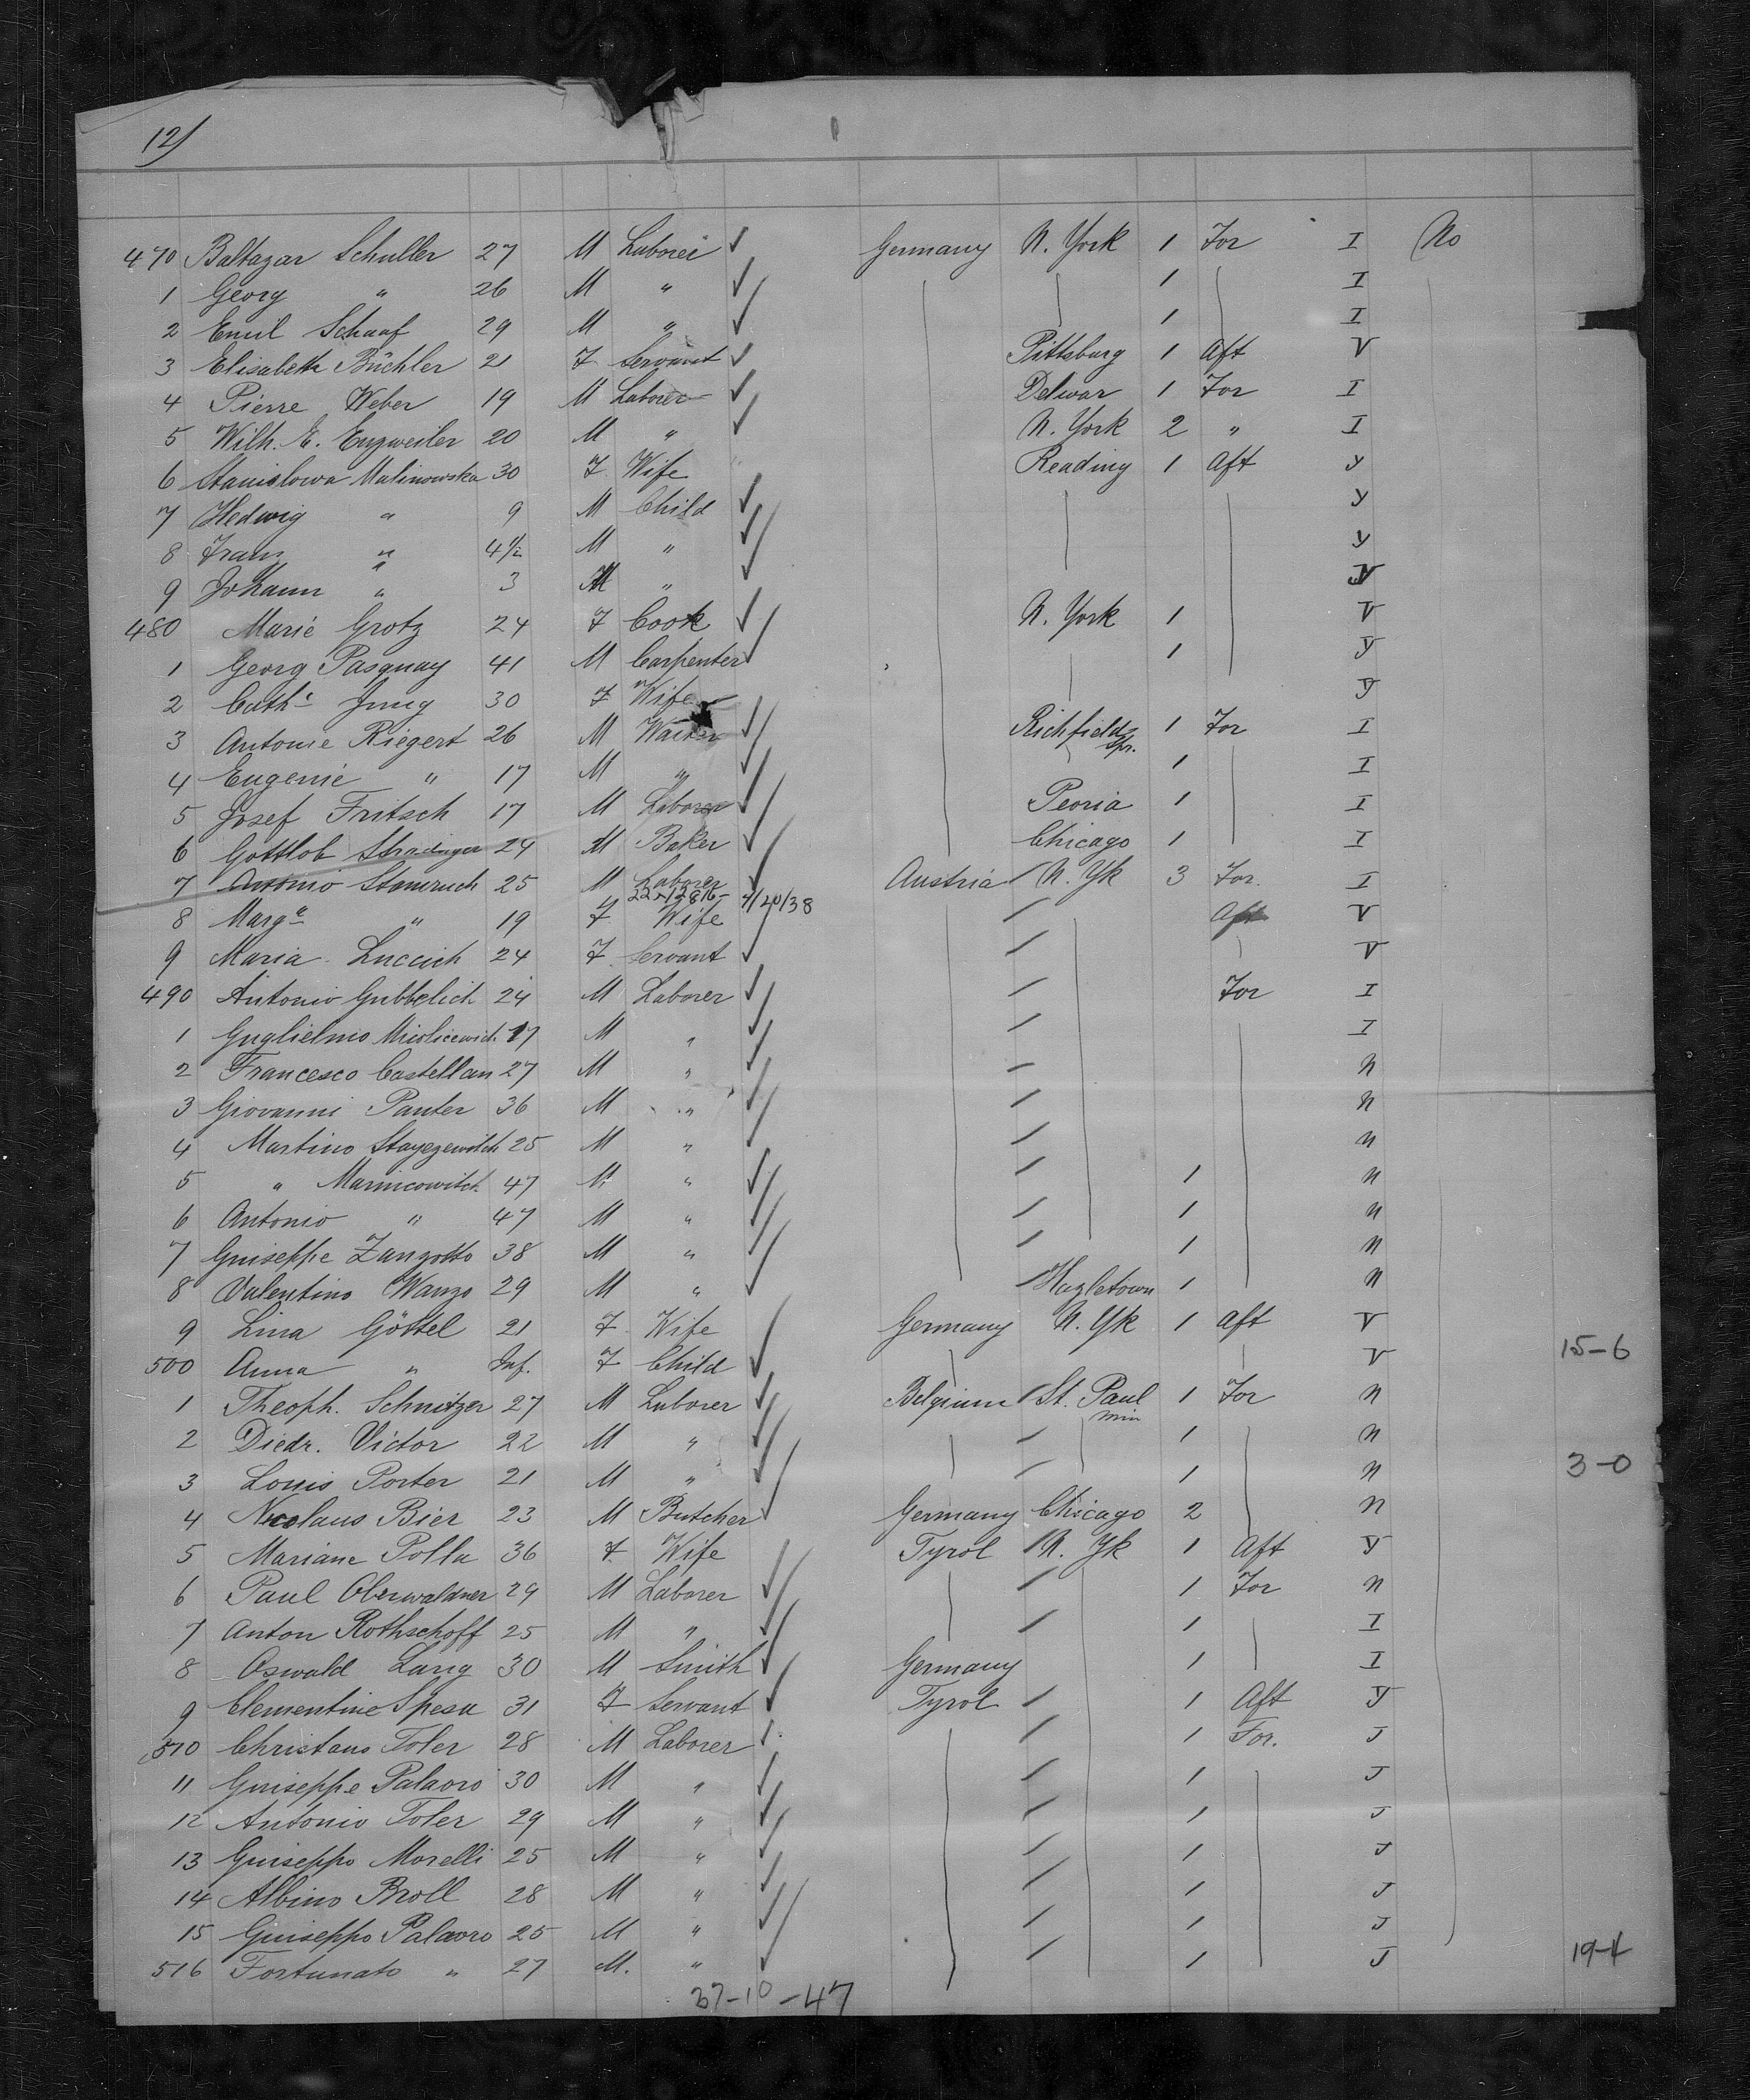 12/
470 Baltazar Schuller 27 M Laborer ✓ Germany N. York 1 For I No
1 Georg " 26 M " ✓ 1 I
2 Emil Schaaf 29 M " ✓ 1 I
3 Elisabeth Büchler 21 F Servant ✓ Pittsburg 1 Aft V
4 Pierre Weber 19 M Laborer ✓ Delwar 1 For I
5 Wilh. E. Enzweiler 20 M " ✓ N. York 2 " I
6 Stanislowa Malinowska 30 F Wife Reading 1 Aft y
7 Hedwig " 9 M Child ✓ y
8 Franz " 4 1/2 M " ✓ y
9 Johann " 3 M " ✓
480 Marie Grotz 24 F Cook ✓ N. York 1 V
1 Georg Pasquay 41 M Carpenter ✓ 1 y
2 Cath. Jung 30 F Wife y
3 Antonie Riegert 26 M Waiter ✓ Richfield Spr. 1 For I
4 Eugenie " 17 M " ✓ 1 I
5 Josef Fritsch 17 M Laborer ✓ Peoria 1 I
6 Gottlob 24 M Baker ✓ Chicago 1 I
7 Antonio Stanruch 25 M Laborer ✓ Austria / N. Yk 3 For. I
22-12816- 4/20/38
8 Marga " 19 F Wife / Aft V
9 Maria Luccich 24 F Servant ✓ / V
490 Antonio Gubbelich 24 M Laborer ✓ / For I
1 Guglielmo Mislicewich 17 M " ✓ / I
2 Francesco Castellan 27 M " ✓ / N
3 Giovanni Panter 36 M " ✓ / N
4 Martino Stayezewitch 25 M " ✓ / N
5 " Marincowitch 47 M " ✓ / 1 N
6 Antonio " 47 M " ✓ / 1 N
7 Guiseppe Zanzotto 38 M " ✓ / 1 N
8 Valentino Wanzo 29 M " ✓ / Hazletown 1 N
9 Lina Göttel 21 F Wife Germany N. Yk 1 Aft V
500 Anna " Inf. F Child ✓ V 15-6
1 Theoph. Schnitzer 27 M Laborer ✓ Belgium / St. Paul Min 1 For N
2 Diedr. Victor 22 M " ✓ / 1 N
3 Louis Porter 21 M " ✓ / 1 N 3-0
4 Nicolaus Bier 23 M Butcher ✓ Germany Chicago 2 N
5 Mariane Polla 36 F Wife Tyrol / N. Yk 1 Aft y
6 Paul Oberwaldner 29 M Laborer ✓ / 1 For N
7 Anton Rothschoff 25 M " ✓ / 1 I
8 Oswald Lang 30 M Smith ✓ Germany 1 I
9 Clementine Spesa 31 F Servant ✓ Tyrol / 1 Aft y
510 Christano Toler 28 M Laborer ✓ / 1 For. J
11 Guiseppe Palaoro 30 M " ✓ / 1 J
12 Antonio Toler 29 M " ✓ / 1 J
13 Guiseppo Morelli 25 M " ✓ / 1 J
14 Albino Broll 28 M " ✓ / 1 J
15 Guiseppo Palaoro 25 M " ✓ / 1 J
516 Fortunato " 27 M. " ✓ / 1 J 19-4
37-10-47